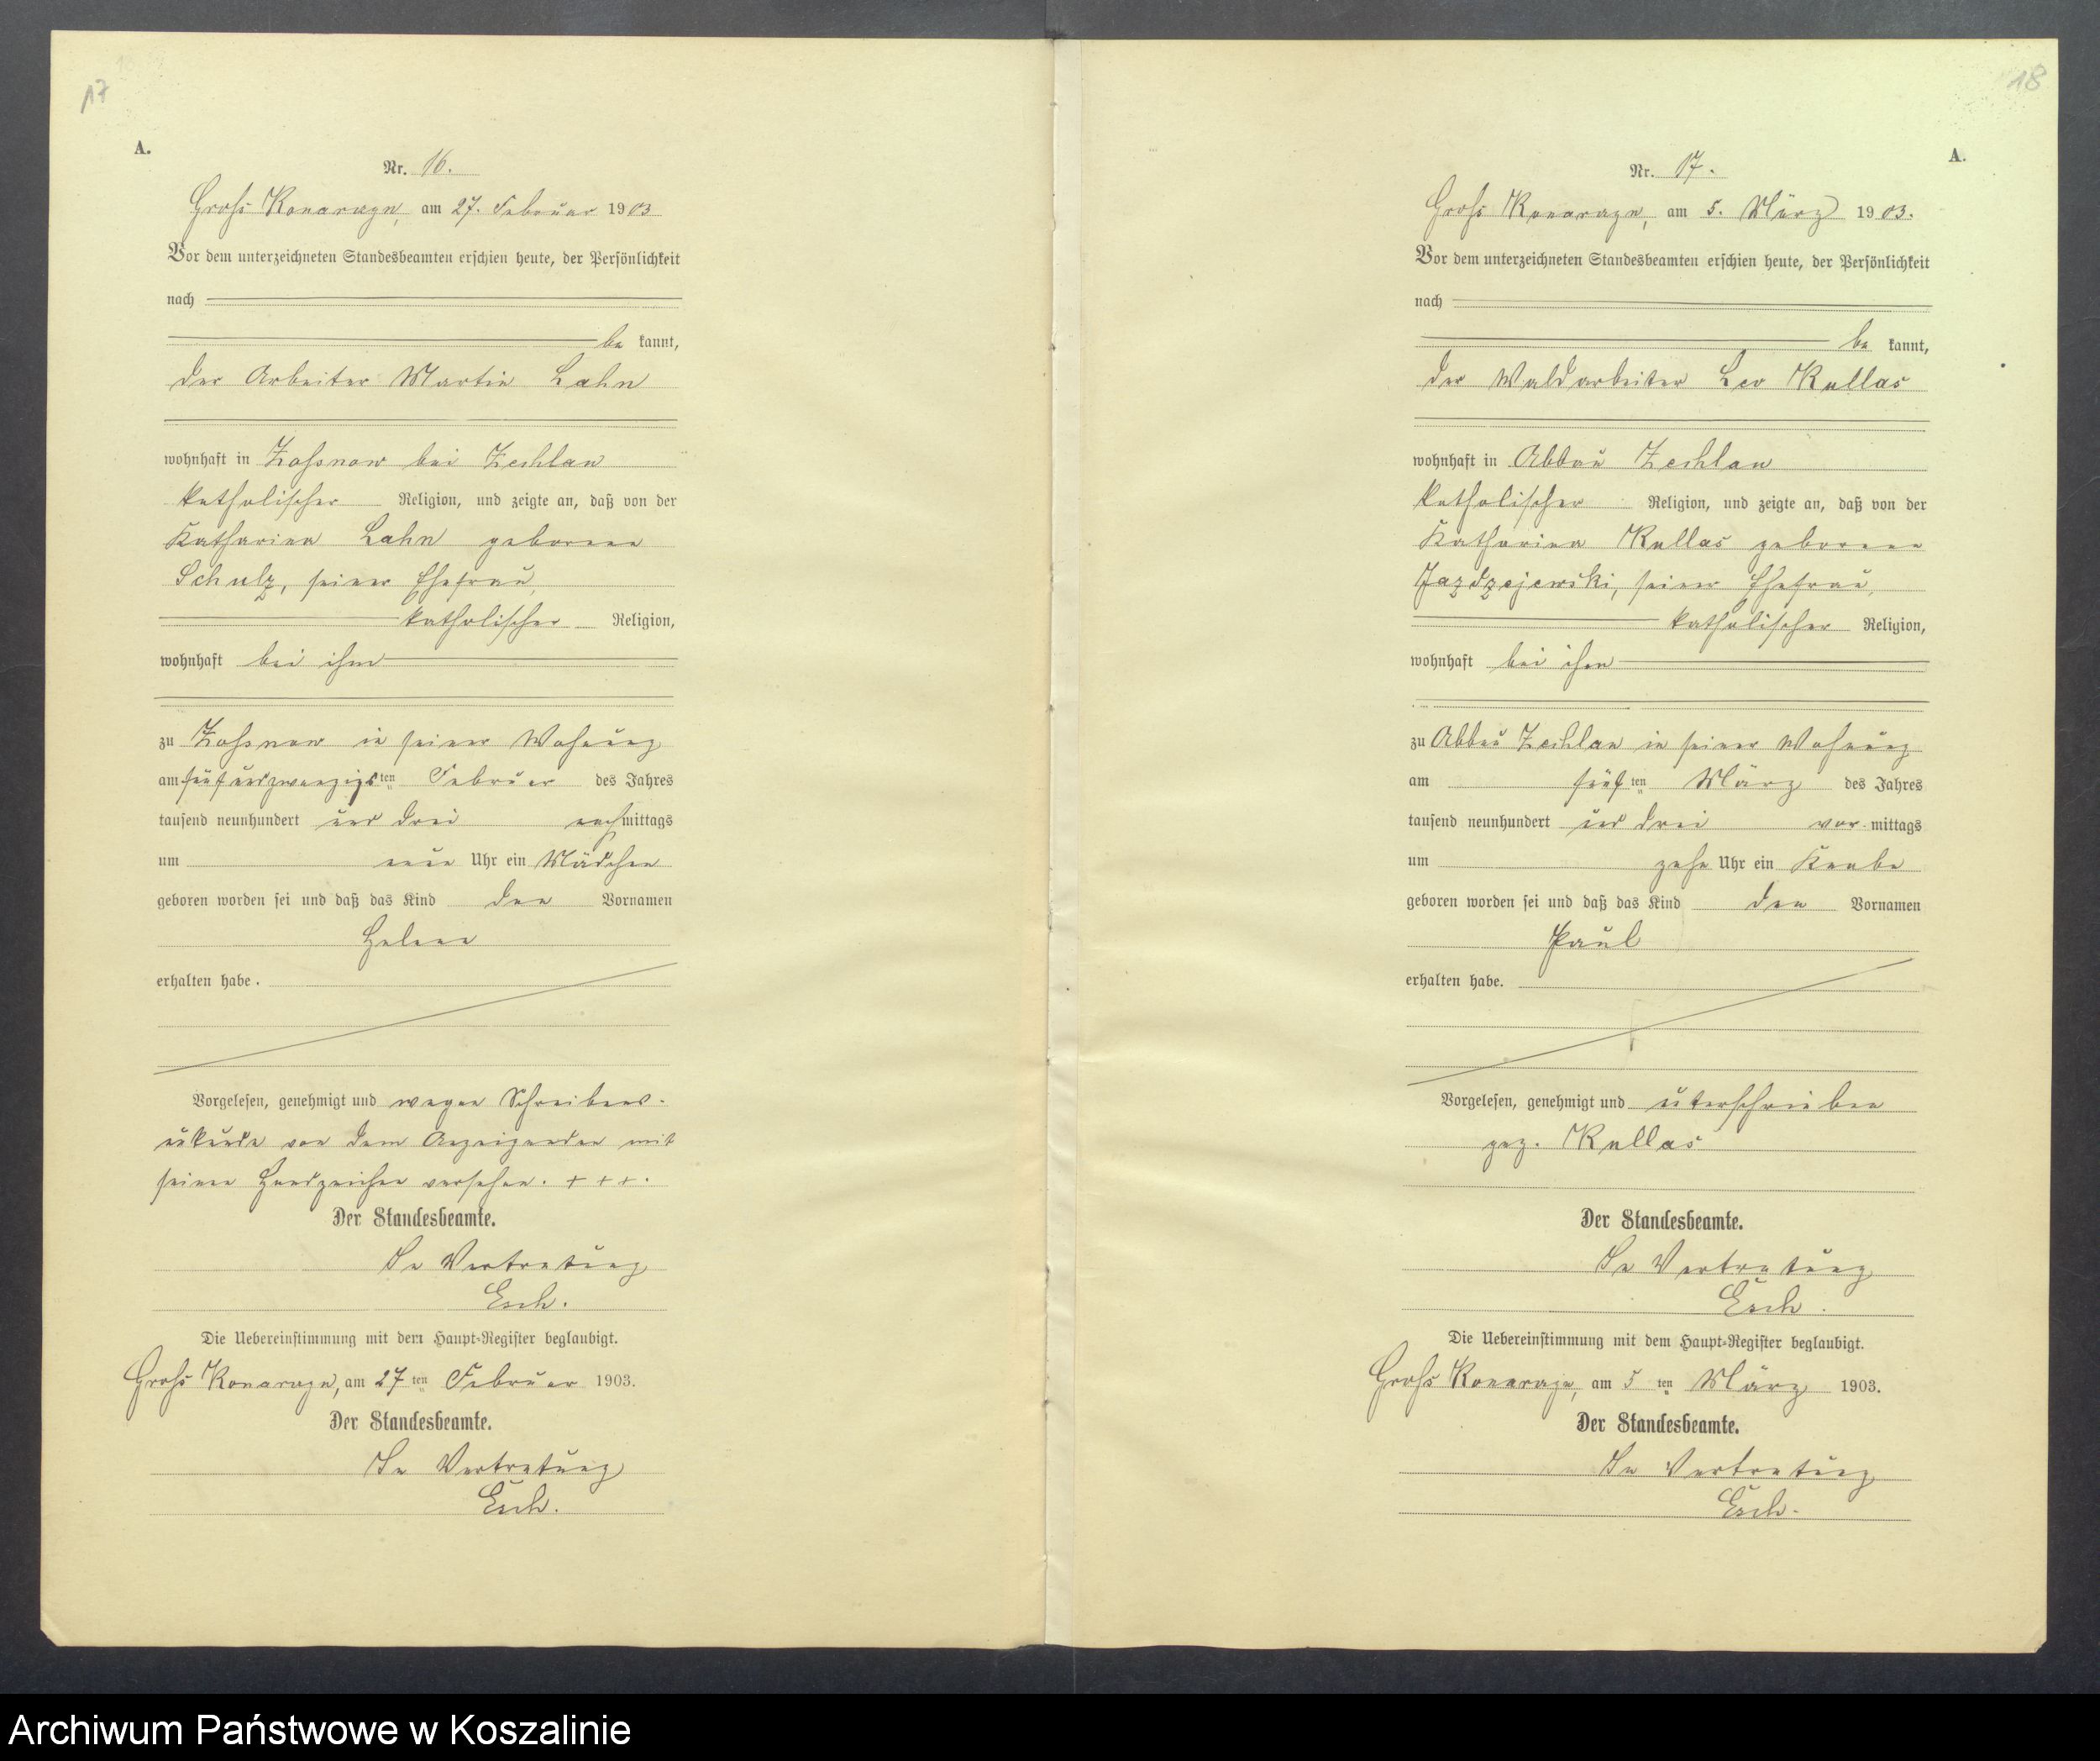 17
A.
Nr. 16.
Groß Konarczyn, am 27. Februar 1903
Vor dem unterzeichneten Standesbeamten erschien heute, der Persönlichkeit
nach
be kannt,
der Arbeiter Martin Lahn
wohnhaft in Zoßnow bei Zechlau
katholischer Religion, und zeigte an, daß von der
Katharina Lahn geborene
Schulz, seiner Ehefrau,
katholischer Religion,
wohnhaft bei ihm
zu Zoßnow in seiner Wohnung
am fünfundzwanzigsten Februar des Jahres
tausend neunhundert und drei nachmittags
um neun Uhr ein Mädchen
geboren worden sei und daß das Kind den Vornamen
Helene
erhalten habe.
Vorgelesen, genehmigt und wegen Schreibens-
unkunde von dem Anzeigenden mit
seinen Handzeichen versehen. + + +.
Der Standesbeamte.
In Vertretung
Esch.
Die Uebereinstimmung mit dem Haupt-Register beglaubigt.
Groß Konarczyn, am 27ten Februar 1903.
Der Standesbeamte.
In Vertretung
Esch.
18
A.
Nr. 17.
Groß Konarczyn, am 5. März 1903.
Vor dem unterzeichneten Standesbeamten erschien heute, der Persönlichkeit
nach
be kannt,
der Waldarbeiter Leo Kullas
wohnhaft in Abbau Zechlau
katholischer Religion, und zeigte an, daß von der
Katharina Kullas geborene
Jazdzejewski, seiner Ehefrau,
katholischer Religion,
wohnhaft bei ihm
zu Abbau Zechlau in seiner Wohnung
am fünften März des Jahres
tausend neunhundert und drei vor mittags
um zehn Uhr ein Knabe
geboren worden sei und daß das Kind den Vornamen
Paul
erhalten habe.
Vorgelesen, genehmigt und unterschrieben
gez. Kullas
Der Standesbeamte.
In Vertretung
Esch.
Die Uebereinstimmung mit dem Haupt-Register beglaubigt.
Groß Konarczyn, am 5ten März 1903.
Der Standesbeamte.
In Vertretung
Esch.
Archiwum Państwowe w Koszalinie